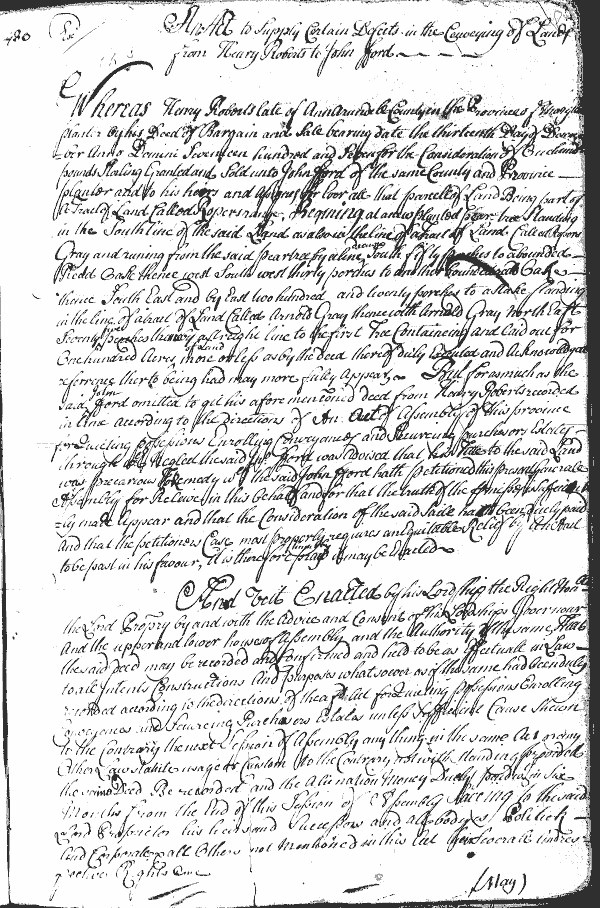 480
An Act to Supply Certain Defects in the Conveying of Land
from Henry Roberts to John fford.
Whereas Henry Roberts late of AnnArundell County in the Province of
planter by his Deed of Bargain and Sale bearing date the thirteenth Day of
Anno Domini Seventeen hundred and for the Consideration of
pounds Sterling Granted and Sold unto John fford of the same County and Province
planter and to his heirs and Assignes for Ever all that parcell of Land Being part of
A Tract of Land Called Ropers range, Begining at a planted pear tree Standing
in the South line of the said Land as also in the line of a tract of Land Called
Gray and runing from the said peartree by a line South fifty perches to a bounded
Redd Oake thence west South west thirty perches to another bounded red Oak
thence South East and by East two hundred and twenty perches to a Stake Standing
in the line of a tract of Land Called Arnold Gray thence with Arnold Gray North East
Seventy perches thence by a streight line to the first Tree Containeing and Laid out for
One hundred Acres of Land more or less as by the deed thereof duly Executed and Acknowledged
referrence thereto being had may more fully Appear. But forasmuch as the
said John fford omitted to get his aforementioned deed from Henry Roberts recorded
in time According to the directions of An Act of Assembly of this province
for Quieting possessions Enrolling Conveyances and Secureing purchasors Estates
through Neglect the said fford was advised that his title to the said Land
was precarious to remedy the said John fford hath petitioned this present Generale
Assembly for Releive in this behalf and for that the truth of the premisses
made Appear and that the Consideration of the said Saile hath been duly paid
And that the petitioners Case most properly requires an Equitable Relief by
to be past in his favour, it is therefore prayed it may be Enacted
And be it Enacted by his Lordship the Right
the Lord Proprietary by and with the Advice and Consent of his Lordships Governour
And the upper and lower houses of Assembly and the Authority of the same, that
the said deed may be recorded and Confirmed and held to be as effectuall in Law
to all intents Constructions And purposes whatsoever as if the same had been duly
recorded according to the directions of the act for Quieting possessions Enrolling
Conveyances and Secureing Purchasers Estates unless Sufficient Cause Shewn
to the Contrary the next Session of Assembly any thing in the same Act or any
Other Law statute usage or Custom to the Contrary notwithstanding provided
the said Deed Be recorded and the Alienation Money Duely paid within Six
Months from the End of this Session of Assembly Saveing to the said
Lord Proprietor his heirs and Successors and all bodyes Politick
and Corporate & all Others not Mentioned in this Act their Severall
Rights &c
(May)